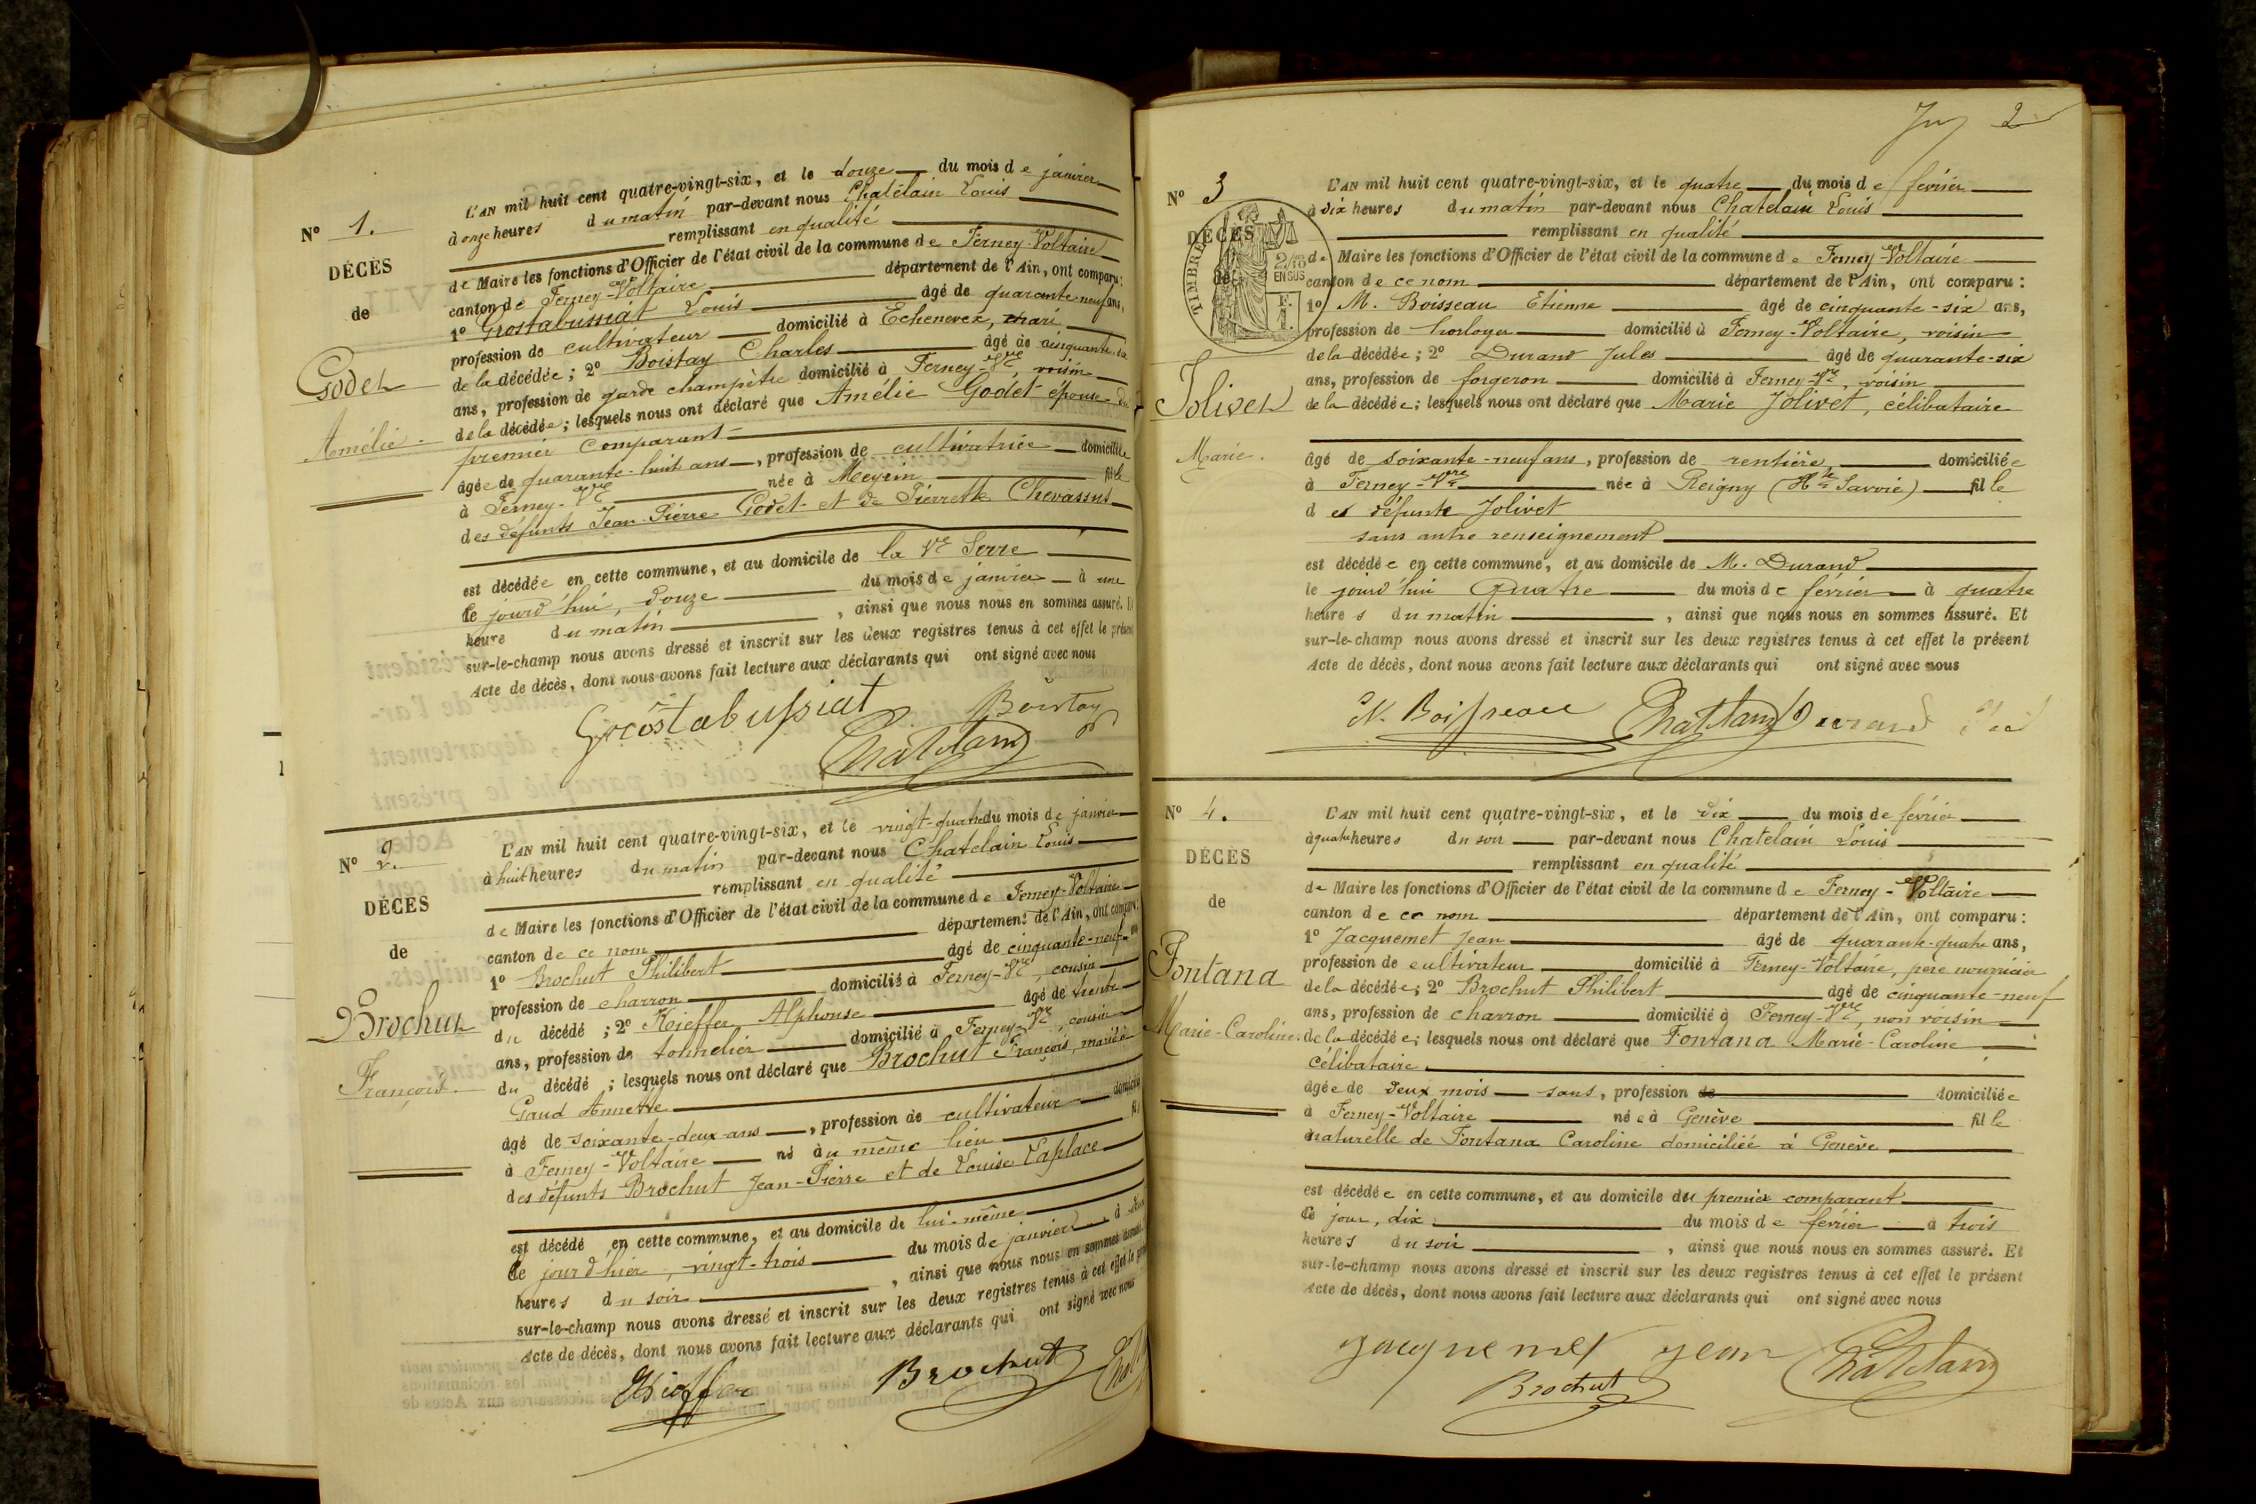 N° 1.
DÉCÈS
de
Godet
Amélie.
L'AN mil huit cent quatre-vingt-six, et le douze du mois de janvier
à onze heures du matin par-devant nous Chatelain Louis
remplissant en qualité
de Maire les fonctions d'Officier de l'état civil de la commune de Ferney-Voltaire
canton de Ferney-Voltaire département de l'Ain, ont comparu:
1° Grostabussiat Louis âgé de quarante-neuf ans,
profession de cultivateur domicilié à Echenevex, mari
de la décédée; 2° Boistay Charles âgé de cinquante-six
ans, profession de garde champêtre domicilié à Ferney-Vre, voisin
de la décédée; lesquels nous ont déclaré que Amélie Godet épouse du
premier comparant
âgée de quarante-huit ans, profession de cultivatrice domiciliée
à Ferney-Vre née à Meyrin fille
des défunts Jean Pierre Godet et de Pierrette Chevassus
est décédée en cette commune, et au domicile de la Ve Serre
le jourd'hui, douze du mois de janvier à une
heure du matin, ainsi que nous nous en sommes assuré. Et
sur-le-champ nous avons dressé et inscrit sur les deux registres tenus à cet effet le présent
Acte de décès, dont nous avons fait lecture aux déclarants qui ont signé avec nous
Grostabussiat Boistay
Chatelain
N° 2.
DÉCÈS
de
Brochut
François.
L'AN mil huit cent quatre-vingt-six, et le vingt-quatre du mois de janvier
à huit heures du matin par-devant nous Chatelain Louis
remplissant en qualité
de Maire les fonctions d'Officier de l'état civil de la commune de Ferney-Voltaire
canton de ce nom département de l'Ain, ont comparu:
1° Brochut Philibert âgé de cinquante-neuf ans
profession de charron domicilié à Ferney-Vre, cousin
du décédé; 2° Kieffer Alphonse âgé de trente
ans, profession de tonnelier domicilié à Ferney-Vre, cousin
du décédé; lesquels nous ont déclaré que Brochut François, marié à
Gaud Annette
âgé de soixante-deux ans, profession de cultivateur domicilié
à Ferney-Voltaire né au même lieu fils
des défunts Brochut Jean-Pierre et de Louise Laplace
est décédé en cette commune, et au domicile de lui-même
le jour d'hier, vingt-trois du mois de janvier à
heures du soir, ainsi que nous nous en sommes assuré.
sur-le-champ nous avons dressé et inscrit sur les deux registres tenus à cet effet le présent
Acte de décès, dont nous avons fait lecture aux déclarants qui ont signé avec nous
Kieffer Brochut
2
N° 3
DÉCÈS
de
TIMBRE
2/10
EN SUS
Jolivet
Marie.
L'AN mil huit cent quatre-vingt-six, et le quatre du mois de février
à dix heures du matin par-devant nous Chatelain Louis
remplissant en qualité
de Maire les fonctions d'Officier de l'état civil de la commune de Ferney-Voltaire
canton de ce nom département de l'Ain, ont comparu:
1° M. Boisseau Etienne âgé de cinquante-six ans,
profession de horloger domicilié à Ferney-Voltaire, voisin
de la décédée; 2° Durand Jules âgé de quarante-six
ans, profession de forgeron domicilié à Ferney-Vre, voisin
de la décédée; lesquels nous ont déclaré que Marie Jolivet, célibataire
âgé de soixante-neuf ans, profession de rentière, domiciliée
à Ferney-Vre née à Reigny (Hte Savoie) fille
des défunts Jolivet
sans autre renseignement
est décédée en cette commune, et au domicile de M. Durand
le jourd'hui Quatre du mois de février à quatre
heures du matin, ainsi que nous nous en sommes assuré. Et
sur-le-champ nous avons dressé et inscrit sur les deux registres tenus à cet effet le présent
Acte de décès, dont nous avons fait lecture aux déclarants qui ont signé avec nous
Boisseau Chatelain Durand
N° 4.
DÉCÈS
de
Fontana
Marie-Caroline.
L'AN mil huit cent quatre-vingt-six, et le dix du mois de février
à quatre heures du soir par-devant nous Chatelain Louis
remplissant en qualité
de Maire les fonctions d'Officier de l'état civil de la commune de Ferney-Voltaire
canton de ce nom département de l'Ain, ont comparu:
1° Jacquemet Jean âgé de quarante-quatre ans,
profession de cultivateur domicilié à Ferney-Voltaire, père nourricier
de la décédée; 2° Brochut Philibert âgé de cinquante-neuf
ans, profession de charron domicilié à Ferney-Vre, non voisin
de la décédée; lesquels nous ont déclaré que Fontana Marie-Caroline
célibataire
âgée de deux mois sans, profession de domiciliée
à Ferney-Voltaire née à Genève fille
naturelle de Fontana Caroline domiciliée à Genève
est décédée en cette commune, et au domicile du premier comparant
le jour, dix du mois de février à trois
heures du soir, ainsi que nous nous en sommes assuré. Et
sur-le-champ nous avons dressé et inscrit sur les deux registres tenus à cet effet le présent
Acte de décès, dont nous avons fait lecture aux déclarants qui ont signé avec nous
Jacquemet Jean Chatelain
Brochut